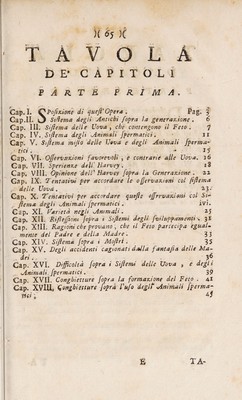 )( 65 )(
TAVOLA
DE' CAPITOLI
PARTE PRIMA.
Cap. I. Sposizione di quest'Opera. Pag. 5
Cap. II. Sistema degli Antichi sopra la generazione. 6
Cap. III. Sistema delle Uova, che contengono il Feto. 7
Cap. IV. Sistema degli Animali spermatici. 11
Cap. V. Sistema misto delle Uova e degli Animali sperma-
tici. 15
Cap. VI. Osservazioni favorevoli, e contrarie alle Uova. 16
Cap. VII. Sperienze dell'Harvey. 18
Cap. VIII. Opinione dell'Harvey sopra la Generazione.
Cap. IX. Tentativi per accordare le osservazioni col sistema
delle Uova. 23.
Cap. X. Tentativi per accordare queste osservazioni col Si-
stema degli Animali spermatici. ivi.
Cap. XI. Varietà negli Animali. 25
Cap. XII. Riflessioni sopra i Sistemi degli sviluppamenti.
Cap. XIII. Ragioni che provano, che il Feto partecipa egual-
mente del Padre e della Madre. 33
Cap. XIV. Sistema sopra i Mostri. 35
Cap. XV. Degli accidenti cagionati dalla fantasia delle Ma-
dri. 36
Cap. XVI. Difficoltà sopra i Sistemi delle Uova, e degli
Animali spermatici. 39
Cap. XVII. Conghietture sopra la formazione del Feto. 41
Cap. XVIII. Conghietture soprà l'uso degli Animali sperma-
tici. 45
E TA-